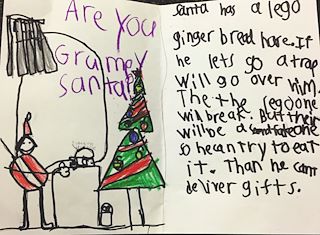 Are you
Grumey
santa?
santa has a lego
ginger bread hare. If
he lets go a trap
will go over him.
The the lego one
will break. But their
will be a one
so he can try to eat
it. Than he cant
deliver gifts.